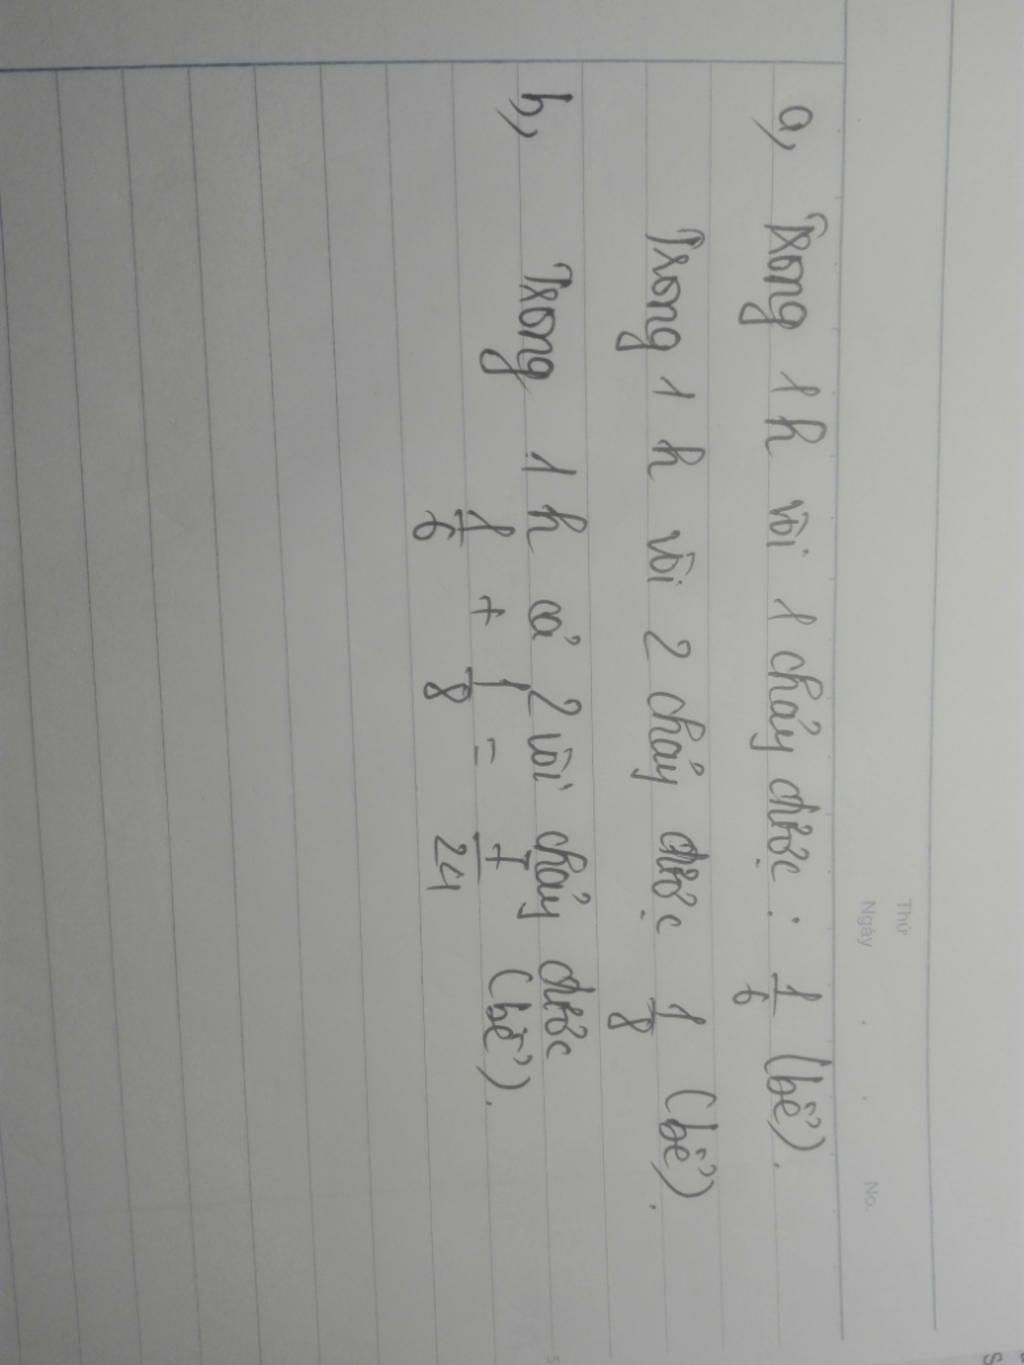 Thứ
Ngày . . No.
a, Trong 1 h vòi 1 chảy được : 1/6 (bể).
Trong 1 h vòi 2 chảy được 1/8 (bể).
b, Trong 1 h cả 2 vòi chảy được
1/6 + 1/8 = 7/24 (bể).